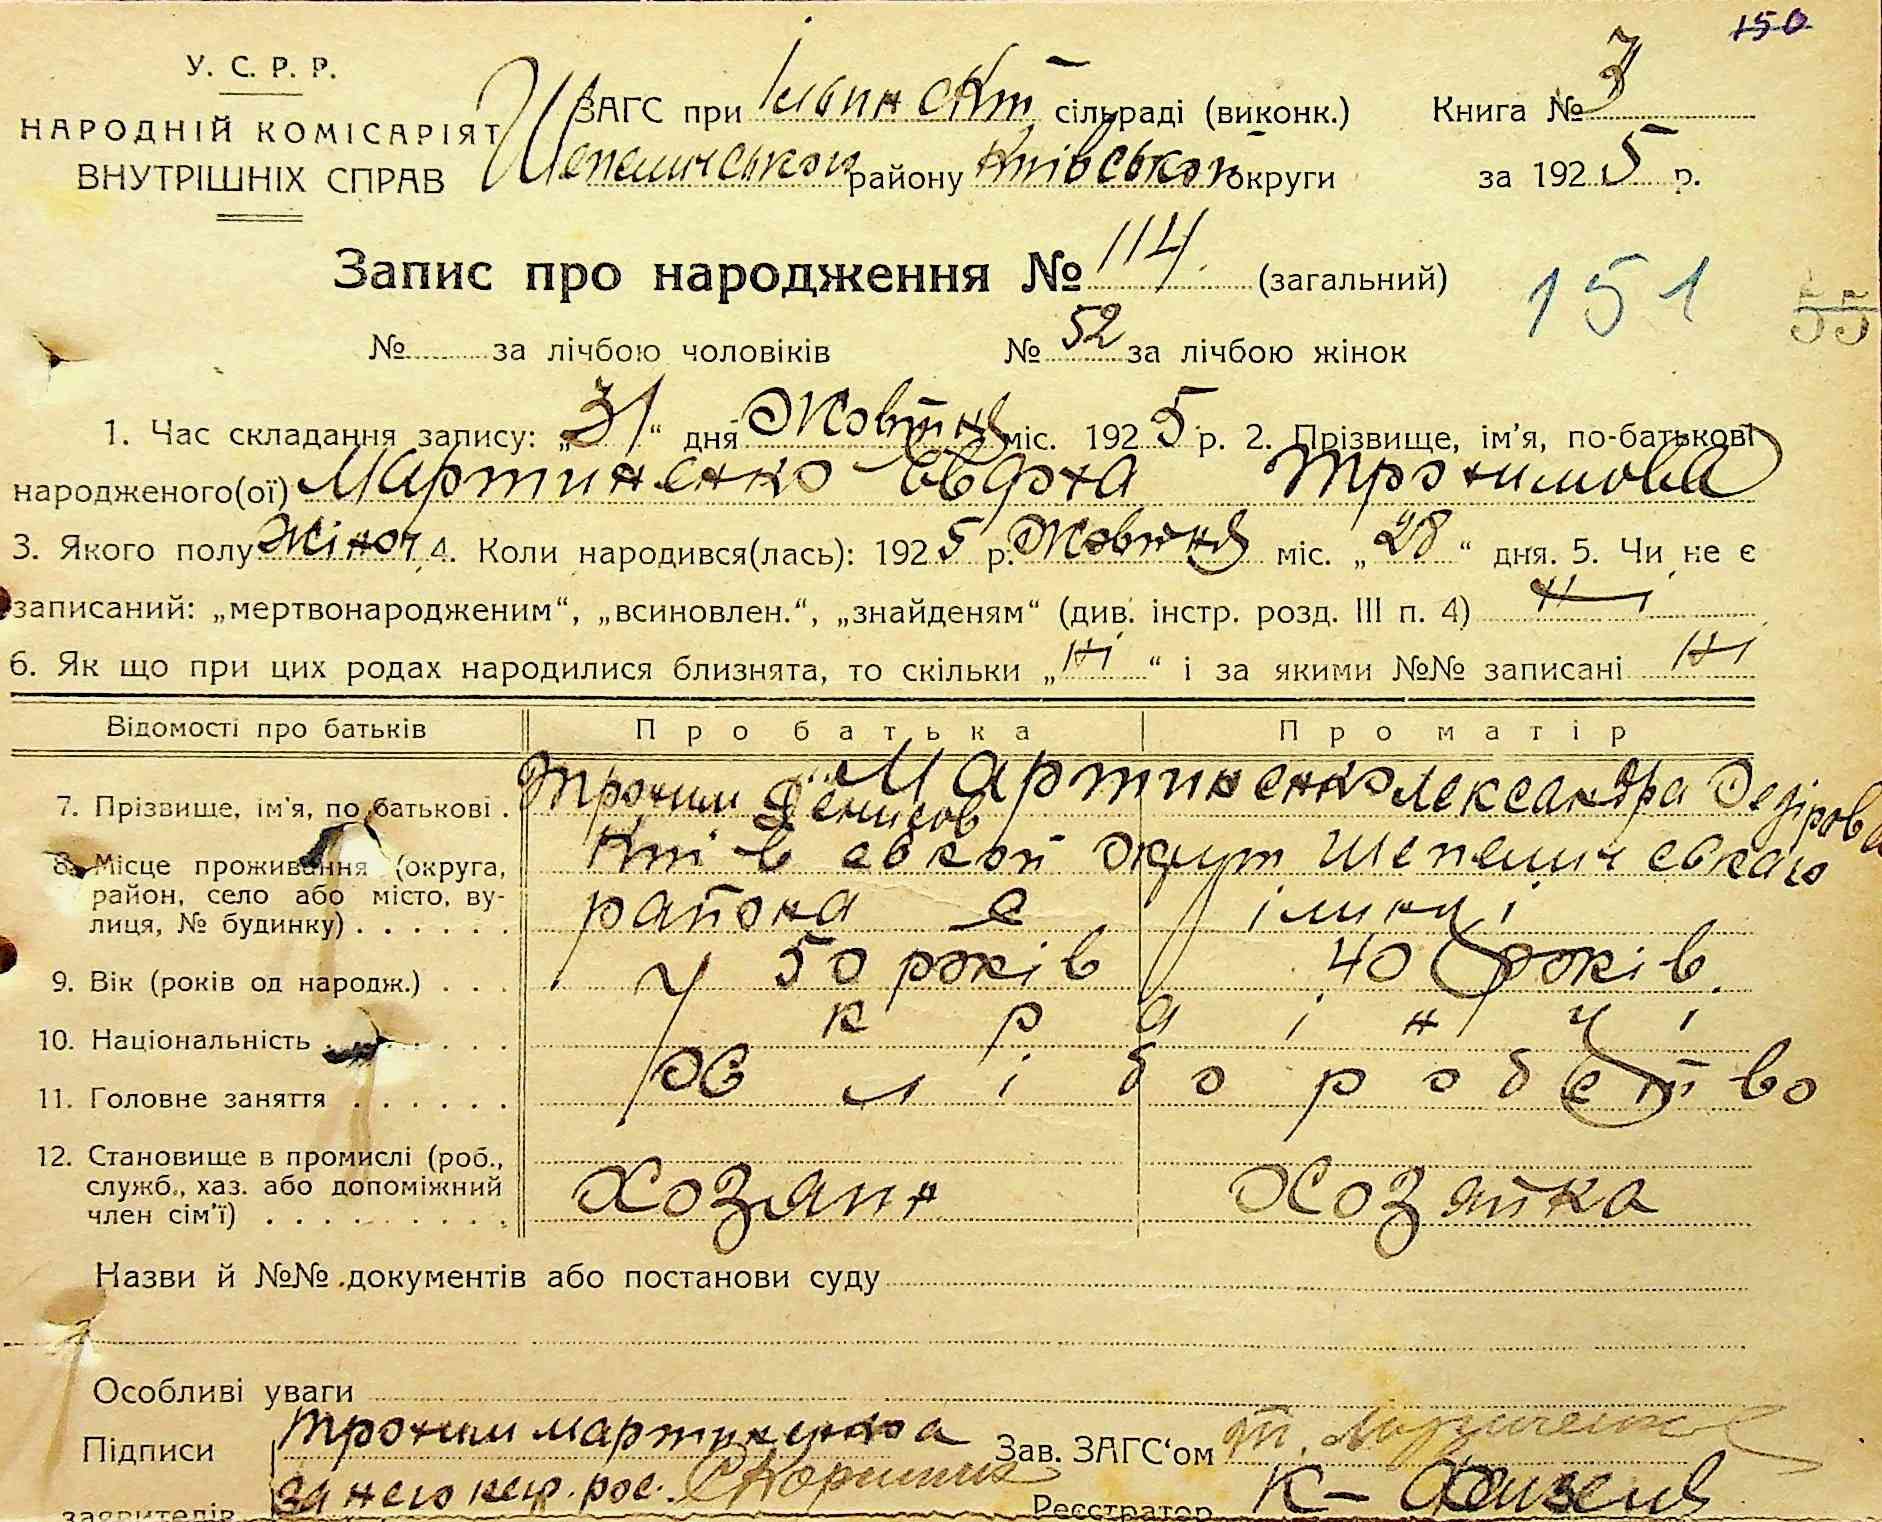 150
У. С. Р. Р.
НАРОДНІЙ КОМІСАРІЯТ
ВНУТРІШНІХ СПРАВ
ЗАГС при сільраді (виконк.) Книга № 3
Шепелической району Київськой округи за 1925 р.
Запис про народження № 114. (загальний)
151
55
№ за лічбою чоловіків № 52 за лічбою жінок
1. Час складання запису: „31“ дня Жовтня міс. 1925 р. 2. Прізвище, ім'я, по-батькові
народженого(ої) Мартиненко Трохимова
3. Якого полу Жіноч 4. Коли народився(лась): 1925 р. Жовтня міс. „28“ дня. 5. Чи не є
записаний: „мертвонародженим“, „всиновлен.“, „знайденям“ (див. інстр. розд. III п. 4) Ні
6. Як що при цих родах народилися близнята, то скільки „Ні“ і за якими №№ записані Ні
Відомості про батьків Про батька Про матір
7. Прізвище, ім'я, по батькові . Мартиненко Трохим Денисов Александра
8. Місце проживання (округа, район, село або місто, вулиця, № будинку) . . . . . . Київської Округи Шепеличского
района с ілинці
9. Вік (років од народж.) . . . 50 років 40 років.
10. Національність . . . . . . . Українці
11. Головне заняття . . . . . . Хліборобство
12. Становище в промислі (роб.,
служб., хаз. або допоміжний
член сім'ї) . . . . . . . . . Хозяин Хозяйка
Назви й №№ документів або постанови суду
Особливі уваги
Підписи Трохим мартиненка Зав. ЗАГС'ом
заявителів за него нер. рос. Реєстратор К-